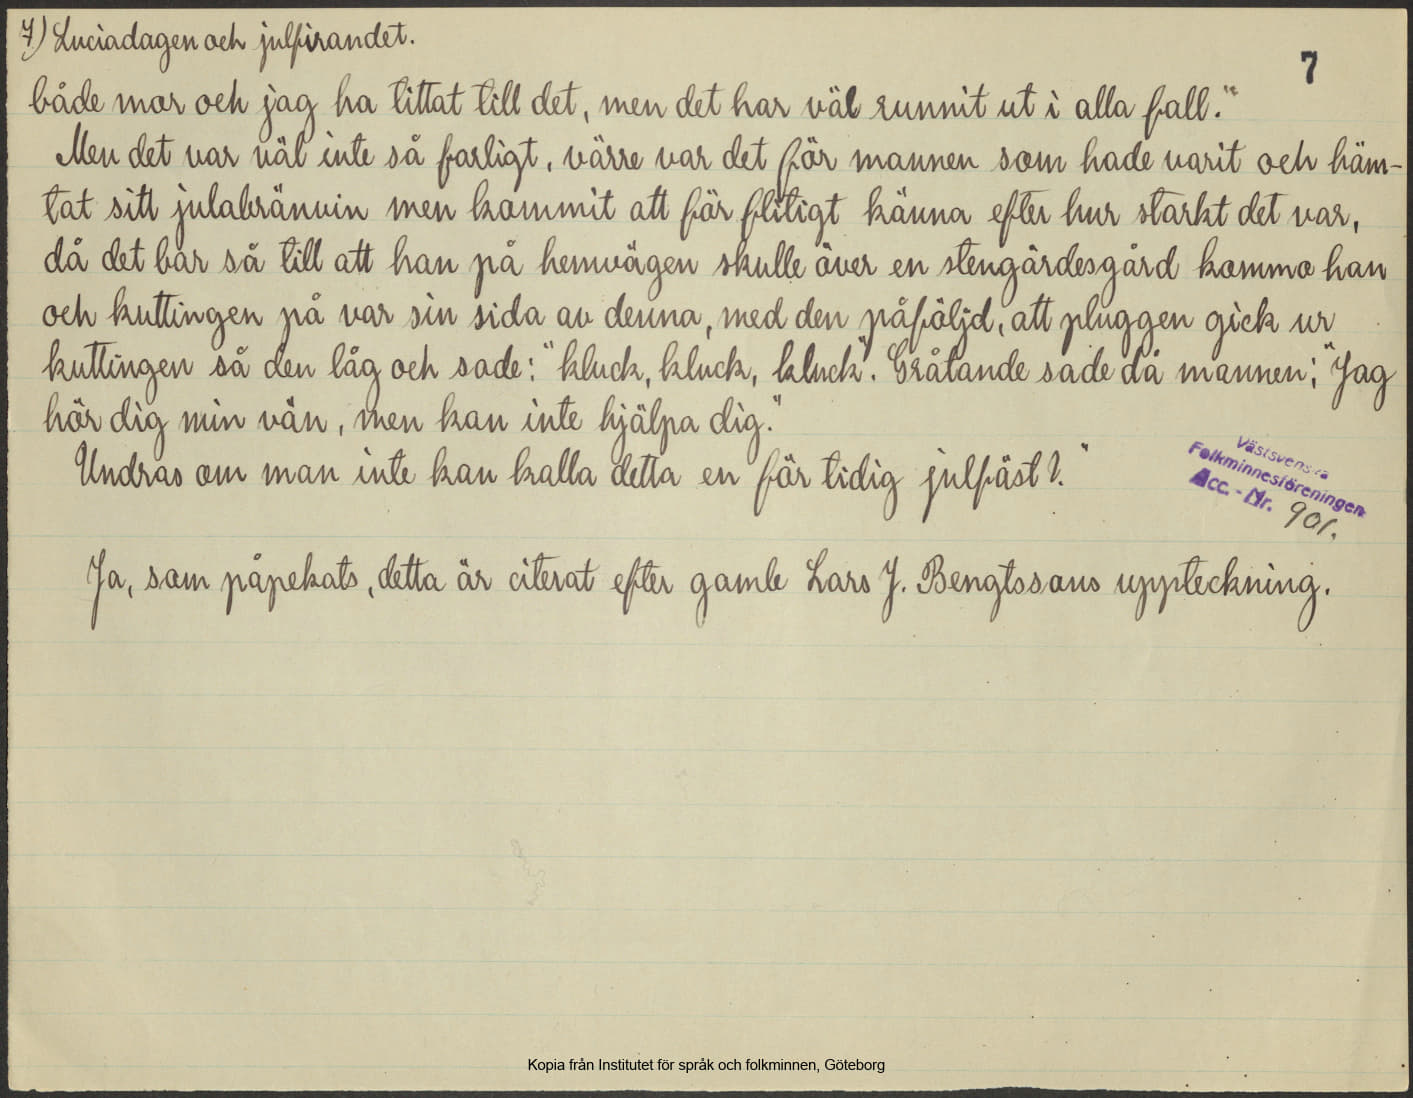 7) Luciadagen och julfirandet.
7
både mor och jag ha tittat till det, men det har väl runnit ut i alla fall."
Men det var väl inte så farligt, värre var det för mannen som hade varit och häm-
tat sitt julabränvin men kommit att för flitigt känna efter hur starkt det var,
då det bar så till att han på hemvägen skulle över en stengärdesgård kommo han
och kuttingen på var sin sida av denna, med den påföljd, att pluggen gick ur
kuttingen så den låg och sade: "kluck, kluck, kluck". Gråtande sade då mannen; "Jag
hör dig min vän, men kan inte hjälpa dig."
Undras om man inte kan kalla detta en för tidig julfäst?."
Västsvenska
Folkminnesföreningen
Acc. - Nr. 901.
Ja, som påpekats, detta är citerat efter gamle Lars J. Bengtssons uppteckning.
Kopia från Institutet för språk och folkminnen, Göteborg